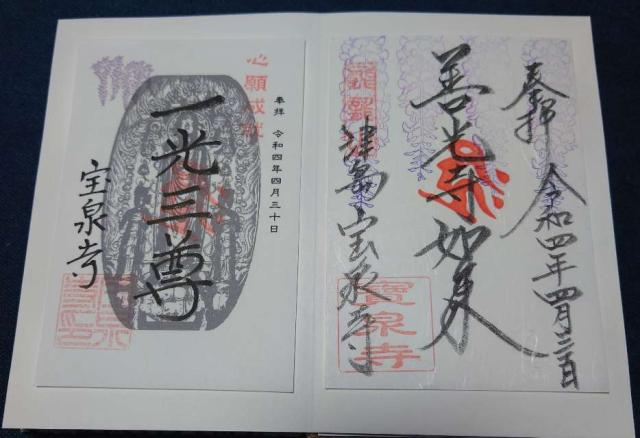 奉拝 令和四年四月三十日
善光寺如来
津島 宝泉寺
寶泉寺
奉拝 令和四年四月三十日
心願成就
一光三尊
宝泉寺